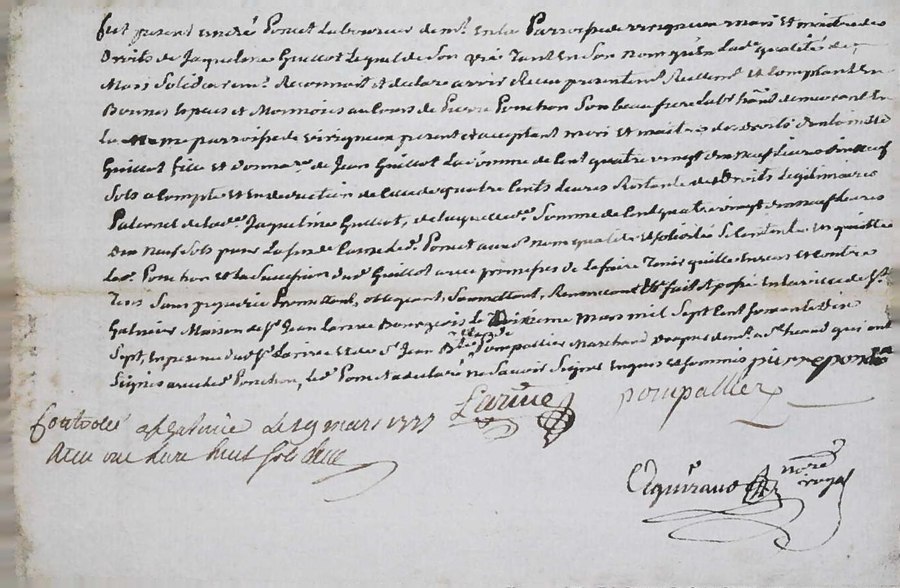 fut present André Poncet Laboureur demt. en la Parroisse de virigneux mari et maitre des
Droits de Jaqueline Guillot Lequel de Son gré Tant En Son nom qu'en Lad. qualité de
Mari Solidairemt. Reconnoit et declare avoir Receu presentemt. Reellemt. et Comptant En
Bonnes Especes et Monnoies au Cours de Pierre Ponchon Son beaufrere Labr. demeurant En
La Meme parroisse de virigneux present et acceptant mari et maitre des droits
Guillot fille et de Jean Guillot La Somme de Cent quatre vingt dix neuf Livres dix neuf
Sols a Compte et En deduction de Celle de quatre Cents Livres Restante des Droits Legitimaires
Paternel de lad. Jaqueline Guillot, de laquelle de. Somme de Cent quatre vingt dix neuf Livres
Dix neuf Sols pour La Susd. Cause Led. Poncet aud. nom qualité et Solidité Se Contente En quitte
Led. Ponchon et la Succession dud. Guillot avec promesses de Le faire Tenir quitte Envers et Contre
Tous Sans prejudice Promettant, obligeant, Soumettant, Renonceant fait et passé En la ville de St.
Galmier Maison de Sr. Jean Larive Bourgeois Le Treizieme Mars mil Sept Cent Soixante Dix
Sept, En presence dud. Sr. Larive et de Sr. Jean Pompallier Marchand qui ont
Signés avec led. Ponchon, led. Poncet a declaré ne Savoir Signer Enquis et Sommés pierre ponchon
Larive pompallier
Controlé a St Galmier Le 19 mars 1777
Reçu une Livre huit Sols
Aguiraud nore. royal